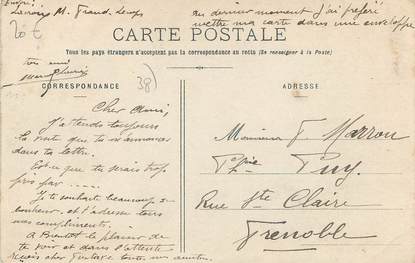 20 €
M. Fraud.
au dernier moment j'ai préféré
mettre ma carte dans une enveloppe
CARTE POSTALE
Tous les pays étrangers n'acceptent pas la correspondance au recto (Se renseigner à la Poste)
ton ami
38)
CORRESPONDANCE
ADRESSE
Cher Ami,
J'attends toujours
la note que tu m'annonces
dans ta lettre.
Est-ce que tu serais trop
pris par
Je te souhaite beaucoup de
bonheur et t'adresse tous
mes compliments.
A Bientôt le plaisir de
te voir et dans l'attente
reçois cher
Monsieur F Marron
Puy
Rue Ste Claire
Grenoble